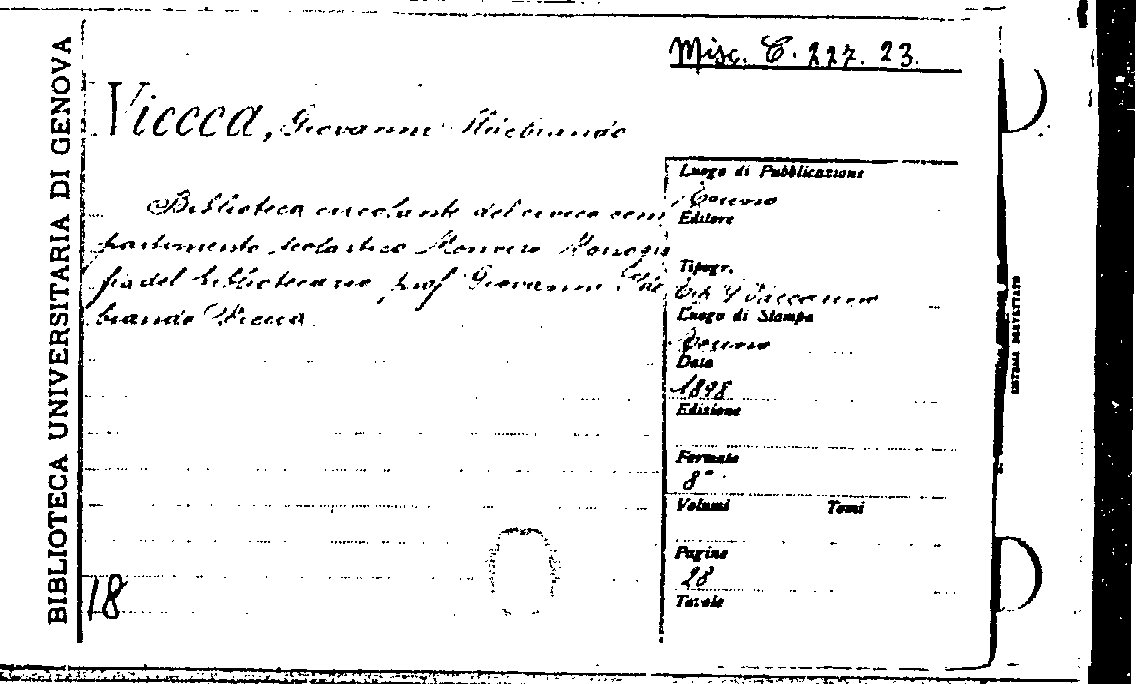 BIBLIOTECA UNIVERSITARIA DI GENOVA
Misc. C. 227. 23.
Viccca, Giovanni Ildebrando
Biblioteca circolante del civico com
partimento scolastico Moncero Monogra
fia del bibliotecario prof Giovanni Ilde
brando Vicca
Luogo di Pubblicazione
Editore
Tipogr.
Tip. Vaccarino
Luogo di Stampa
Data
1898
Edizione
Formato
8°
Volumi Tomi
Pagine
28
Tavole
18